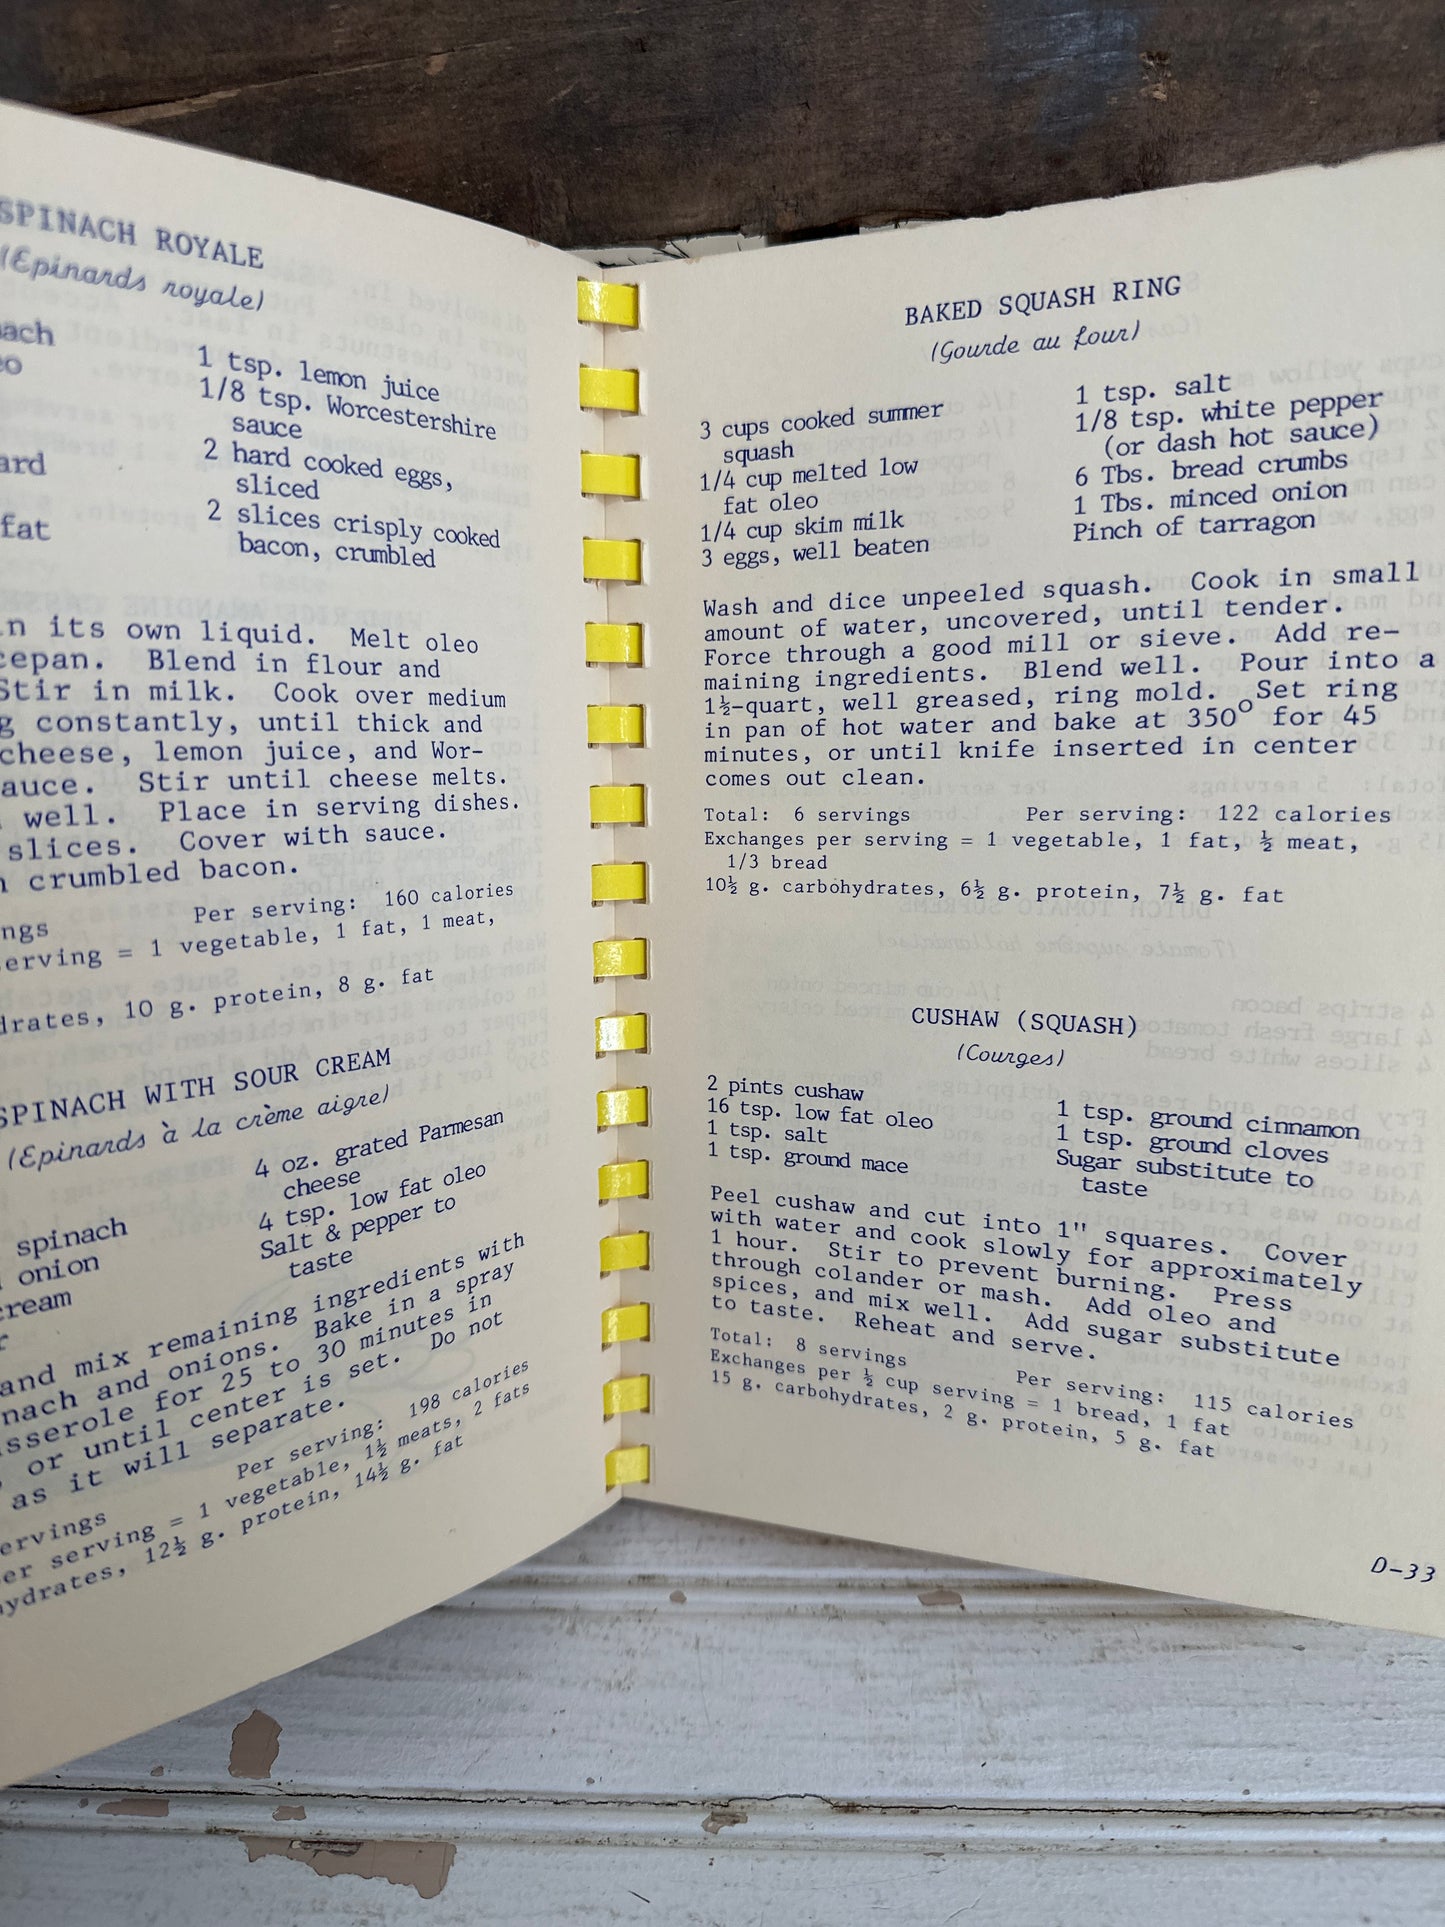 SPINACH ROYALE
(Epinards royale)
1 tsp. lemon juice
1/8 tsp. Worcestershire
sauce
2 hard cooked eggs,
sliced
fat
2 slices crisply cooked
bacon, crumbled
its own liquid. Melt oleo
Blend in flour and
Stir in milk. Cook over medium
constantly, until thick and
cheese, lemon juice, and Wor-
Stir until cheese melts.
well. Place in serving dishes.
slices. Cover with sauce.
crumbled bacon.
Per serving: 160 calories
= 1 vegetable, 1 fat, 1 meat,
10 g. protein, 8 g. fat
SPINACH WITH SOUR CREAM
(Epinards à la crème aigre)
4 oz. grated Parmesan
cheese
spinach
4 tsp. low fat oleo
onion
Salt & pepper to
cream
taste
and mix remaining ingredients with
and onions. Bake in a spray
for 25 to 30 minutes in
or until center is set. Do not
as it will separate.
Per serving: 198 calories
serving = 1 vegetable, 1½ meats, 2 fats
12½ g. protein, 14½ g. fat
BAKED SQUASH RING
(Gourde au four)
3 cups cooked summer
squash
1/4 cup melted low
fat oleo
1/4 cup skim milk
3 eggs, well beaten
1 tsp. salt
1/8 tsp. white pepper
(or dash hot sauce)
6 Tbs. bread crumbs
1 Tbs. minced onion
Pinch of tarragon
Wash and dice unpeeled squash. Cook in small
amount of water, uncovered, until tender.
Force through a good mill or sieve. Add re-
maining ingredients. Blend well. Pour into a
1½-quart, well greased, ring mold. Set ring
in pan of hot water and bake at 350° for 45
minutes, or until knife inserted in center
comes out clean.
Total: 6 servings Per serving: 122 calories
Exchanges per serving = 1 vegetable, 1 fat, ½ meat,
1/3 bread
10½ g. carbohydrates, 6½ g. protein, 7½ g. fat
CUSHAW (SQUASH)
(Courges)
2 pints cushaw
16 tsp. low fat oleo
1 tsp. salt
1 tsp. ground mace
1 tsp. ground cinnamon
1 tsp. ground cloves
Sugar substitute to
taste
Peel cushaw and cut into 1" squares. Cover
with water and cook slowly for approximately
1 hour. Stir to prevent burning. Press
through colander or mash. Add oleo and
spices, and mix well. Add sugar substitute
to taste. Reheat and serve.
Total: 8 servings Per serving: 115 calories
Exchanges per ½ cup serving = 1 bread, 1 fat
15 g. carbohydrates, 2 g. protein, 5 g. fat
D-33